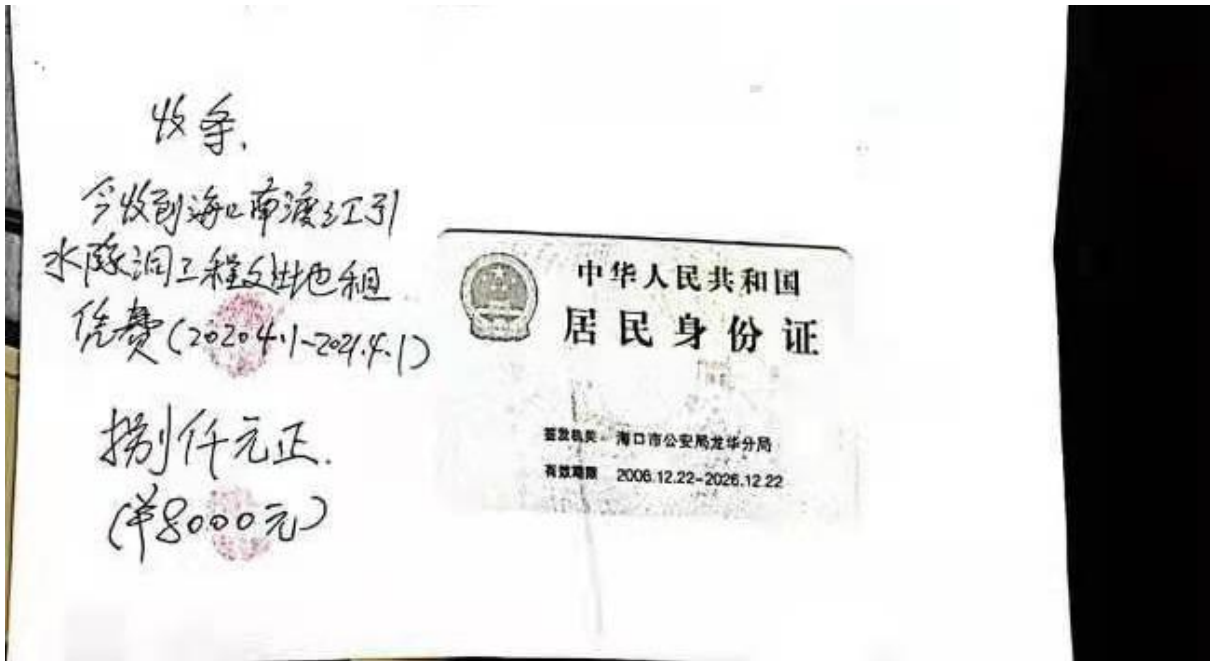 收条.
今收到海口南渡江引
水隧洞工程处地租
凭费(2020.4.1-2021.4.1)
捌仟元正.
(¥8000元)
中华人民共和国
居民身份证
签发机关 海口市公安局龙华分局
有效期限 2006.12.22-2026.12.22